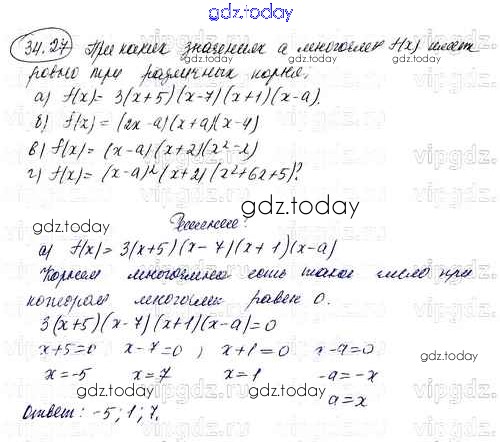 gdz.today
34.27 При каких значениях a многочлен f(x) имеет
ровно три различных корня:
а) f(x) = 3(x+5)(x-7)(x+1)(x-a).
б) f(x) = (2x-a)(x+a)(x-4)
в) f(x) = (x-a)(x+2)(x²-2)
г) f(x) = (x-a)²(x+2)(x²+6x+5)?
gdz.today
Решение:
а) f(x) = 3(x+5)(x-7)(x+1)(x-a)
Корнем многочлена есть такое число при
котором многочлен равен 0.
3(x+5)(x-7)(x+1)(x-a)=0
x+5=0 x-7=0; x+1=0 x-a=0
x=-5 x=7 x=1 -a=-x
a=x
Ответ: -5; 1; 7.
gdz.today
gdz.today
gdz.today
gdz.today
gdz.today
gdz.today